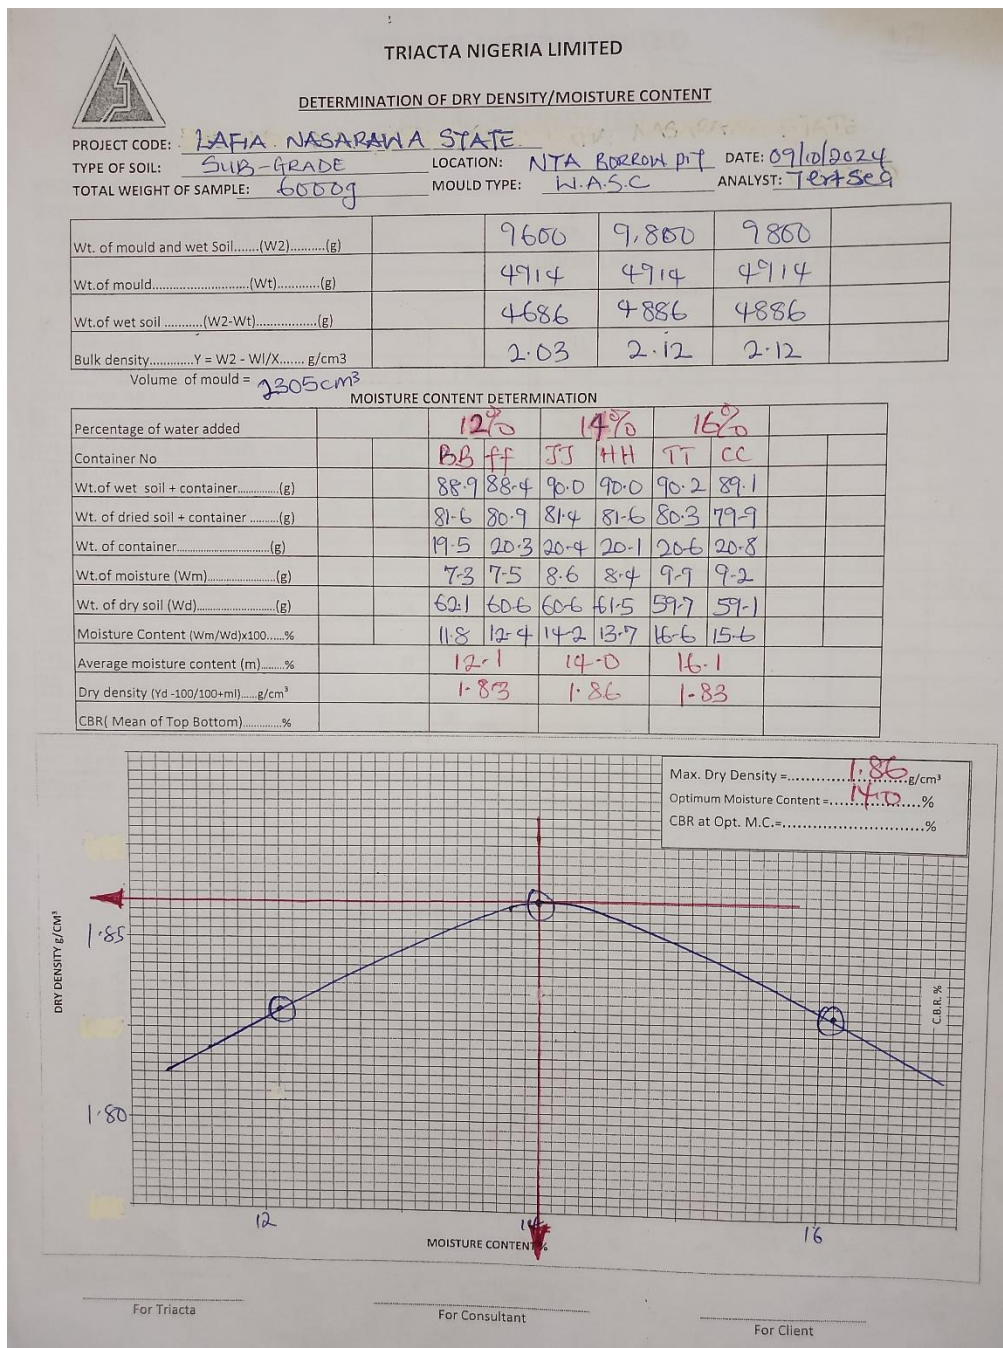 TRIACTA NIGERIA LIMITED
DETERMINATION OF DRY DENSITY/MOISTURE CONTENT
PROJECT CODE: LAFIA NASARAWA STATE
TYPE OF SOIL: SUB-GRADE LOCATION: NTA BORROW PIT DATE: 09/10/2024
TOTAL WEIGHT OF SAMPLE: 6000g MOULD TYPE: W.A.S.C ANALYST: Tertsea
Wt. of mould and wet Soil.......(W2)..........(g) 9600 9,800 9800
Wt.of mould............................(Wt)............(g) 4914 4914 4914
Wt.of wet soil ...........(W2-Wt).................(g) 4686 4886 4886
Bulk density.............Y = W2 - Wl/X....... g/cm3 2.03 2.12 2.12
Volume of mould = 2305cm³
MOISTURE CONTENT DETERMINATION
Percentage of water added 12% 14% 16%
Container No BB ff JJ HH TT CC
Wt.of wet soil + container..............(g) 88.9 88.4 90.0 90.0 90.2 89.1
Wt. of dried soil + container ..........(g) 81.6 80.9 81.4 81.6 80.3 79.9
Wt. of container...............................(g) 19.5 20.3 20.4 20.1 20.6 20.8
Wt.of moisture (Wm).......................(g) 7.3 7.5 8.6 8.4 9.9 9.2
Wt. of dry soil (Wd)..........................(g) 62.1 60.6 60.6 61.5 59.7 59.1
Moisture Content (Wm/Wd)x100.....% 11.8 12.4 14.2 13.7 16.6 15.6
Average moisture content (m)........% 12.1 14.0 16.1
Dry density (Yd -100/100+ml)......g/cm³ 1.83 1.86 1.83
CBR( Mean of Top Bottom).............%
Max. Dry Density =.......1.86.......g/cm³
Optimum Moisture Content =.......14.0.......%
CBR at Opt. M.C.=............................%
DRY DENSITY g/CM³
1.85
1.80
C.B.R. %
12 14 16
MOISTURE CONTENT %
For Triacta
For Consultant
For Client